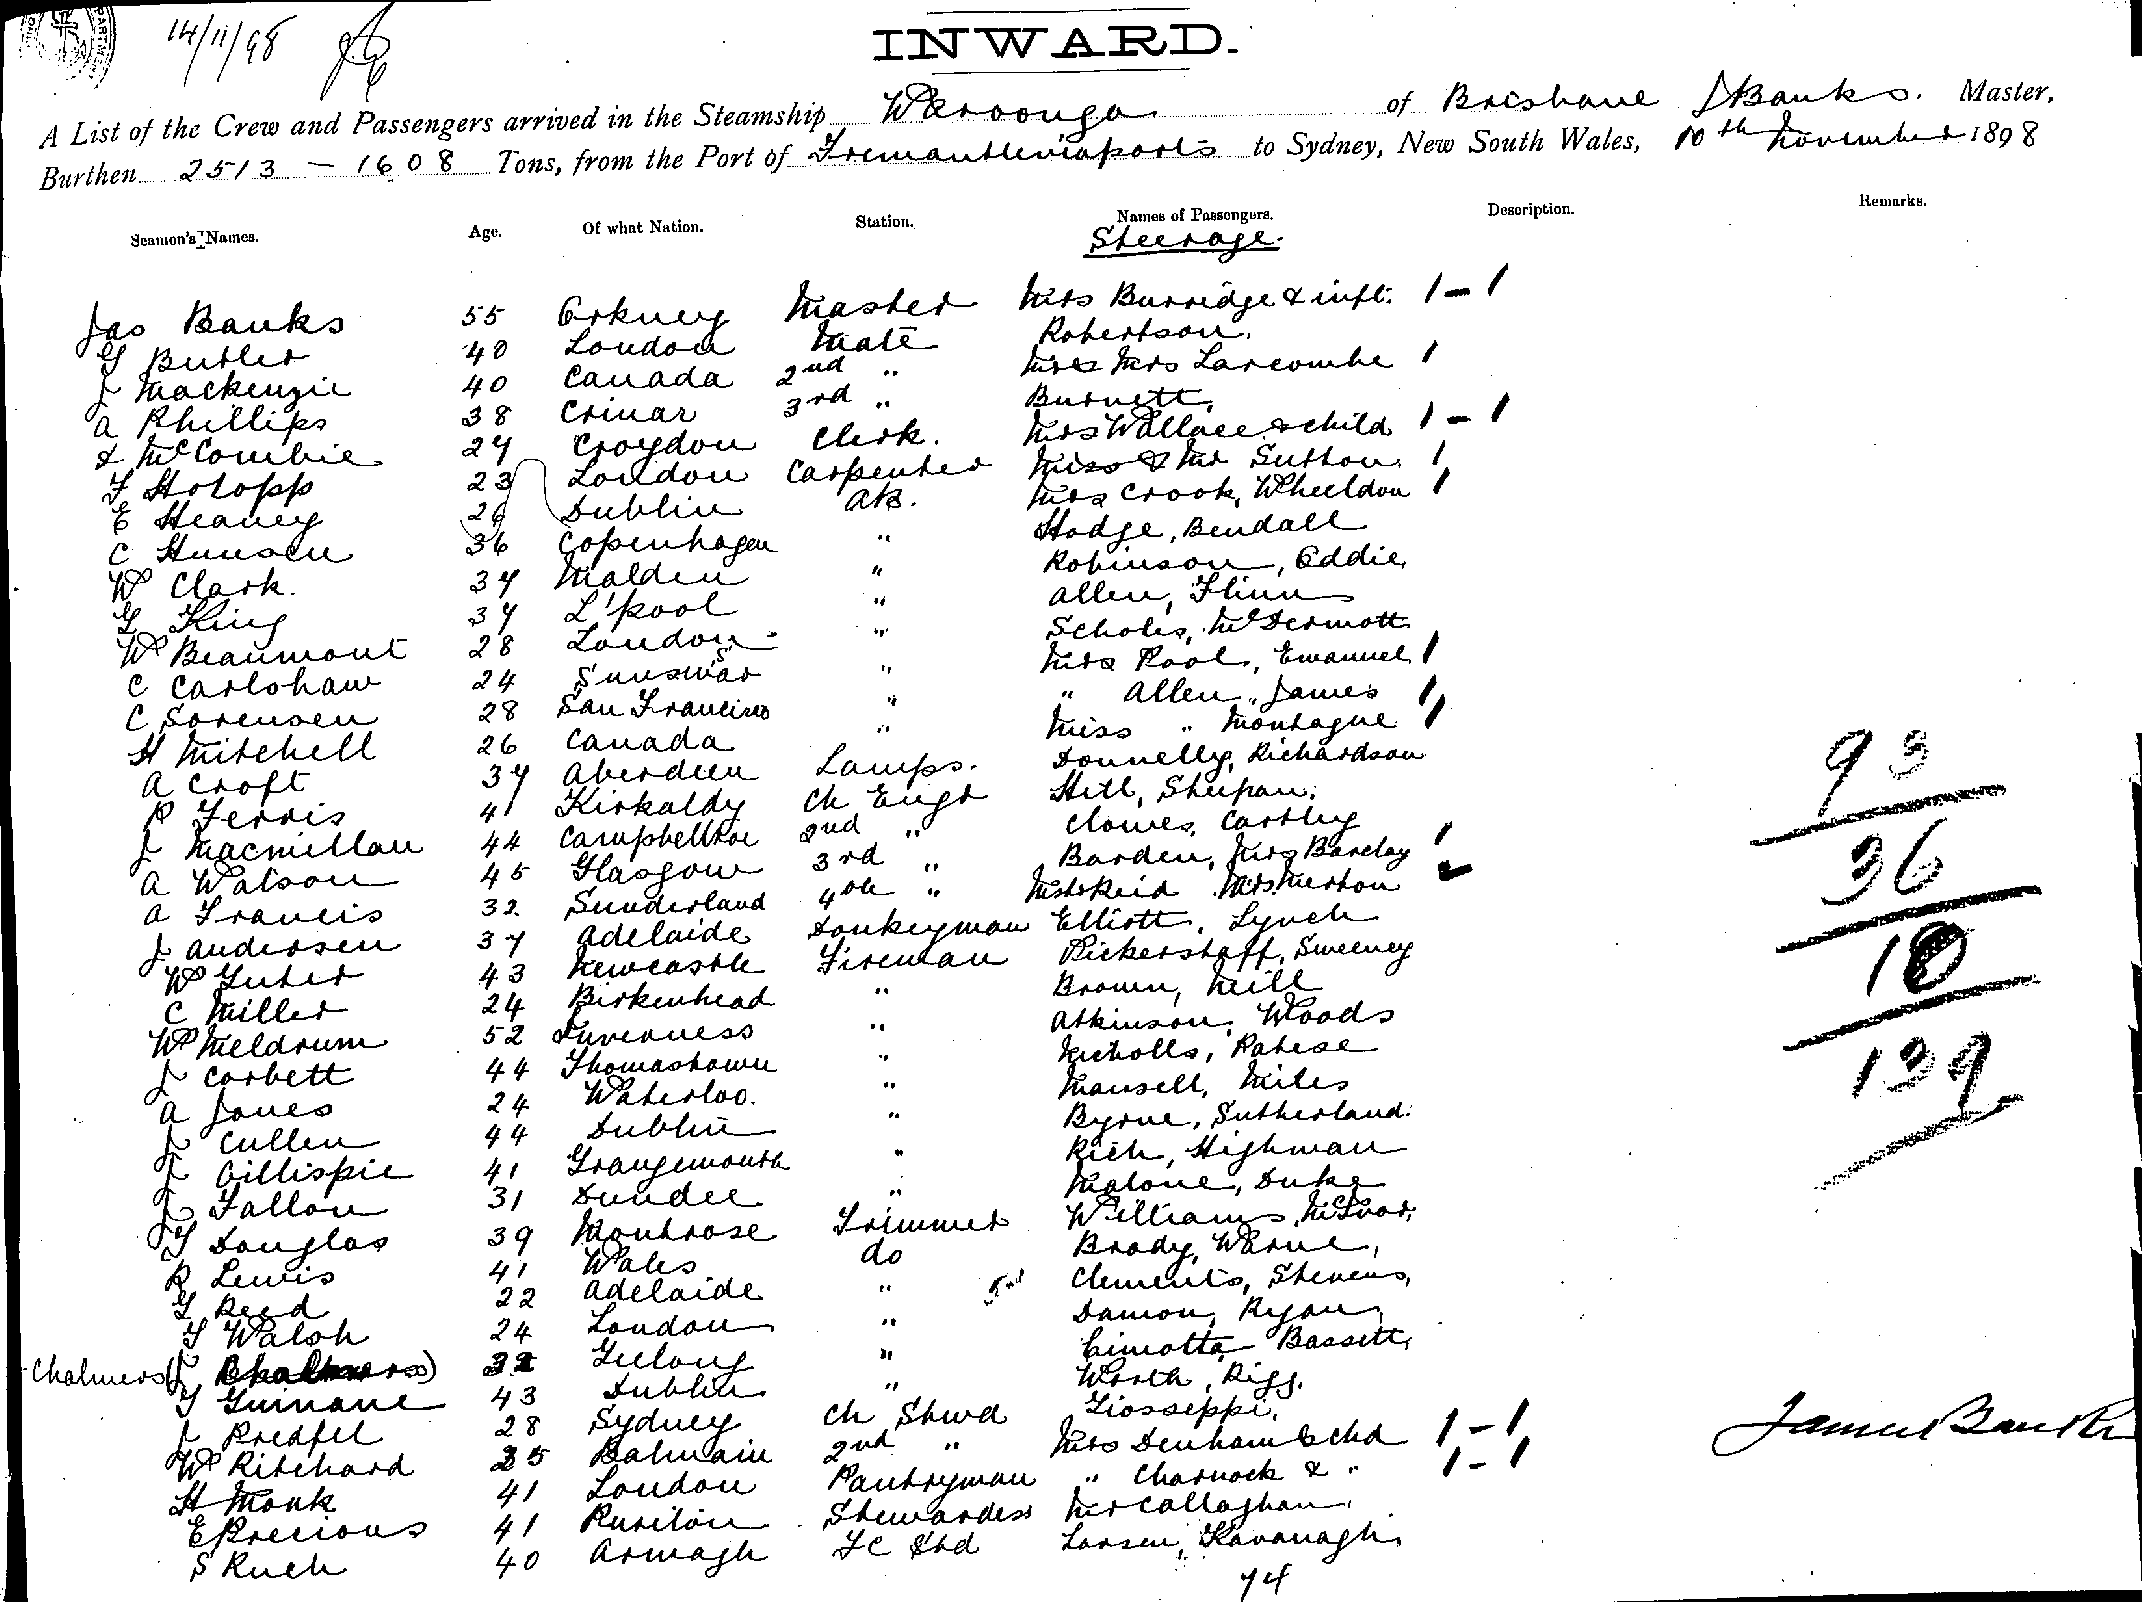 14/11/98
INWARD.
A List of the Crew and Passengers arrived in the Steamship Waroonga of Brisbane J Banks. Master,
Burthen 2513 — 1608 Tons, from the Port of Fremantle via ports to Sydney, New South Wales, 10th November 1898
Seamen's Names. Age. Of what Nation. Station. Names of Passengers. Description. Remarks.
Steerage.
Jas Banks 55 Orkney Master Mrs Burridge & inft. 1 - 1
G Butler 40 London Mate Robertson.
J Mackenzie 40 Canada 2nd " Mrs Larcombe 1
A Phillips 38 Crinar 3rd " Burnett,
McCombie 27 Croydon Clerk. Mrs Wallace & child 1 - 1
Holopp 23 London Carpenter Miss & Mr Sutton. 1
E Heaney 26 Dublin AB. Mrs Crook, Wheeldon 1
C Hansen 36 Copenhagen " Hodge, Bendall
W Clark. 37 Malden " Robinson, Eddie,
G King 37 L'pool " Allen, Flinn
W Beaumont 28 London " Scholes, McDermott
C Carlshaw 24 " Mrs Pool, Emanuel 1
C Sorensen 28 San Francisco " " Allen, James 1
H Mitchell 26 Canada " Miss " Montague 1
A Croft 37 Aberdeen Lamps. Donnelly, Richardson
P Ferris 41 Kirkaldy Ch Engr Hill, Shepan,
J Macmillan 44 Campbelltoe 2nd " Clowes, Carthy
A Watson 45 Glasgow 3rd " Barden, Mrs Barclay 1
A Francis 32 Sunderland 4th " Reid Mrs Merton
J Andersen 37 Adelaide Donkeyman Elliott, Lynch
W Guter 43 Newcastle Fireman Bickerstaff, Sweeney
C Miller 24 Birkenhead " Brown, Neill
W Meldrum 52 Inverness " Atkinson, Woods
J Corbett 44 Thomastown " Nicholls, Patese
A Jones 24 Waterloo. " Mansell, Miles
J Cullen 44 Dublin " Byrne, Sutherland.
J Gillispie 41 Grangemouth " Rich, Highman
J Fallon 31 Dundee " Malone, Duke
Douglas 39 Montrose Trimmer Williams, McIvor,
R Lewis 41 Wales do Brady, Warne,
G Reed 22 Adelaide " Clements, Stevens,
T Walsh 24 London " Damon, Ryan,
Chalmers (J Chalmers) 32 Geelong " Cimotta Bassett,
T Guinane 43 Dublin " Worth, Rigg.
J Predfel 28 Sydney Ch Stwd Giosseppi,
W Pritchard 35 Balmain 2nd " Mrs Denham & chd 1 - 1
H Monk 41 London Pantryman " Charnock & " 1 - 1
E Precious 41 Puriton Stewardess Mr Callaghan,
S Ruch 40 Armagh FC Std Larsen, Kavanagh,
74
93
36
10
139
James Banks